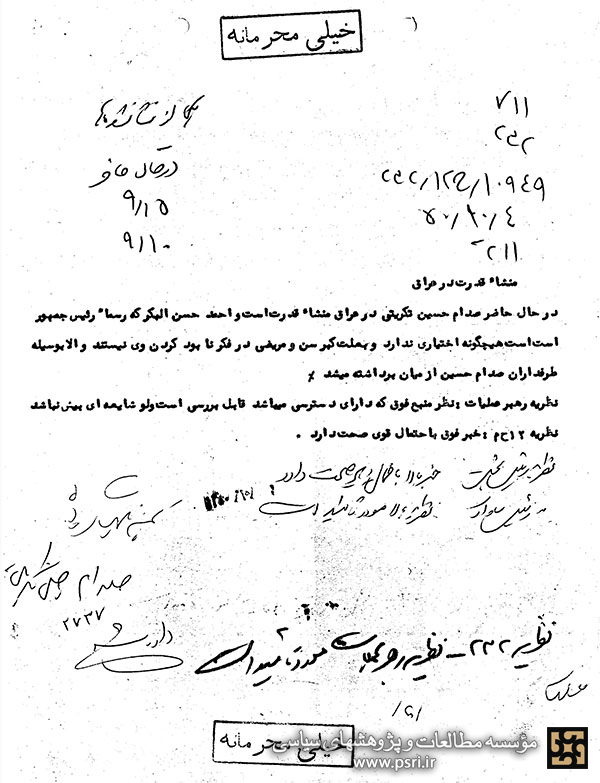 خیلی محرمانه
۷۱۱
۲۳۲
در حال حاضر
۲۳۲/۱۲ح/۱۰۹۴۹
۹/۱۵
۵۰/۱۰/۴
۹/۱۰
۲۱۱
منشاء قدرت در عراق
در حال حاضر صدام حسین تکریتی در عراق منشاء قدرت است و احمد حسن البکر که رسما" رئیس جمهور
است است هیچگونه اختیاری ندارد و بعلت کبر سن و مریضی در فکر نابود کردن وی نیستند والا بوسیله
طرفداران صدام حسین از میان برداشته میشد ٪
نظریه رهبر عملیات : نظر منبع فوق که دارای دسترسی میباشد قابل بررسی است ولو شایعه ای بیش نباشد
نظریه ۱۲ح م : خبر فوق با احتمال قوی صحت دارد .
نظریه رئیس بخش خبر بالا با احتمال صحت دارد
نظریه بالا مورد تائید است
صدام حسین تکریتی
۲۷۳۷
نظریه ۲۳۲ - نظریه رهبر عملیات مورد تائید است
خیلی محرمانه
مؤسسه مطالعات و پژوهشهای سیاسی
www.psri.ir